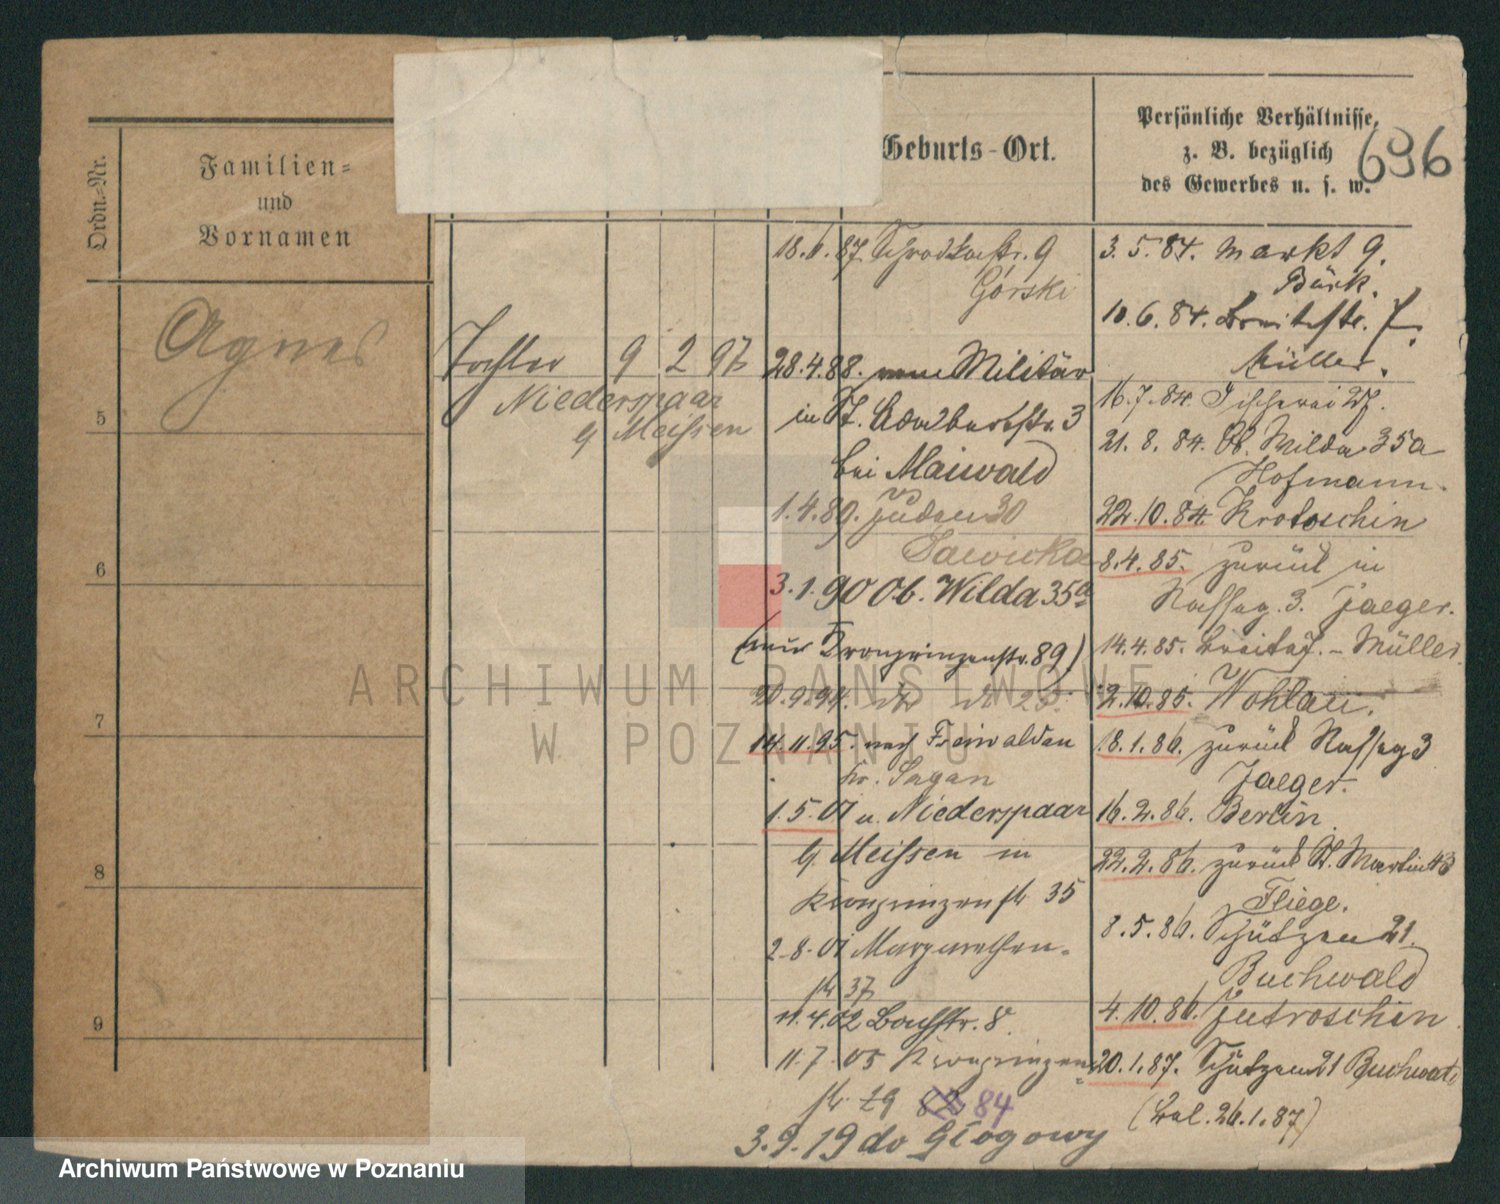 Ordn.-Nr.
Familien-
und
Vornamen
Geburts-Ort.
Persönliche Verhältnisse,
z. B. bezüglich
des Gewerbes u. s. w.
696
Agnes
Tochter 9 2 97
Niederspaar
b/ Meissen
5
6
7
8
9
18.6.87. Schrodkastr. 9
Górski
28.4.88. vom Militär
in St. Adalbertstr. 3
bei Maiwald
1.4.89. Juden 30
Sawicka
3.1.90 Ob. Wilda 35a
(nun Kronprinzenstr. 89)
20.9.94.
14.11.95. nach Freiwaldau
Kr. Sagan
1.5.01 v. Niederspaar
b/ Meissen in
Kronprinzenstr 35
2.8.01 Margarethen-
str 37
11.4.02 Bachstr. 8.
11.7.05 Kronprinzen-
str 84
3.9.19 do Głogowy
3.5.84. Markt 9.
Bürk.
10.6.84. Breitestr. 7.
Müller.
16.7.84. Fischerei 27.
21.8.84. Ob. Wilda 35a
Hofmann.
22.10.84. Krotoschin
8.4.85. zurück in
Nasseg. 3. Jaeger.
14.4.85. Breitestr. - Müller.
2.10.85. Wohlau.
18.1.86. zurück Nasseg 3
Jaeger.
16.2.86. Berlin.
22.2.86. zurück St. Martin 43
Fliege.
8.5.86. Schützen 21.
Buchwald
4.10.86. Jutroschin.
20.1.87. Schützen 21 Buchwald
(26.1.87)
ARCHIWUM PAŃSTWOWE
W POZNANIU
Archiwum Państwowe w Poznaniu